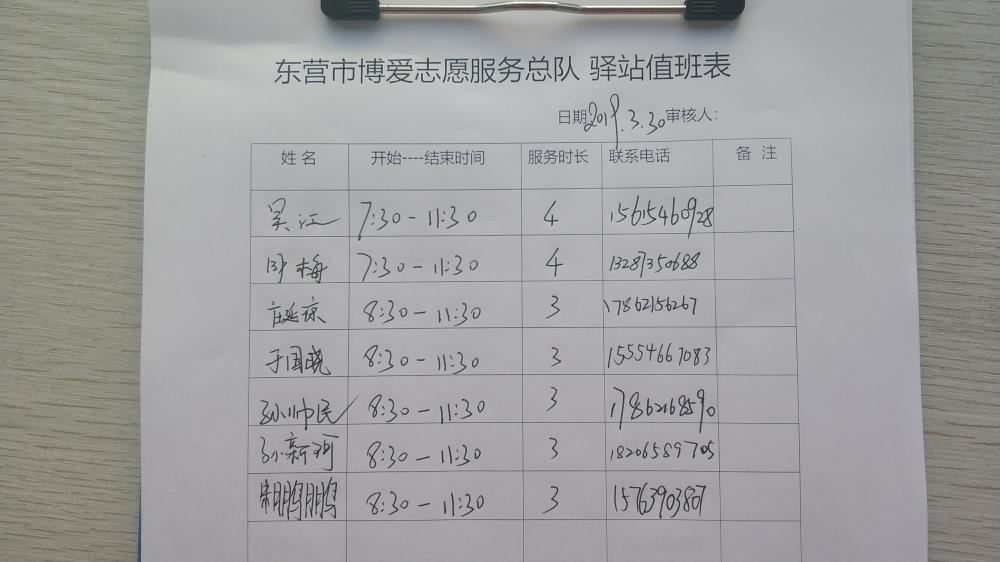 东营市博爱志愿服务总队 驿站值班表
日期2019.3.30审核人：
姓名 开始----结束时间 服务时长 联系电话 备注
吴江 7:30-11:30 4 15615460928
时梅 7:30-11:30 4 13287350688
庄延琼 8:30-11:30 3 17862156267
于国晓 8:30-11:30 3 15554667083
孙帅民 8:30-11:30 3 17862168590
孙新珂 8:30-11:30 3 18206589705
朱鹏鹏 8:30-11:30 3 15763903807